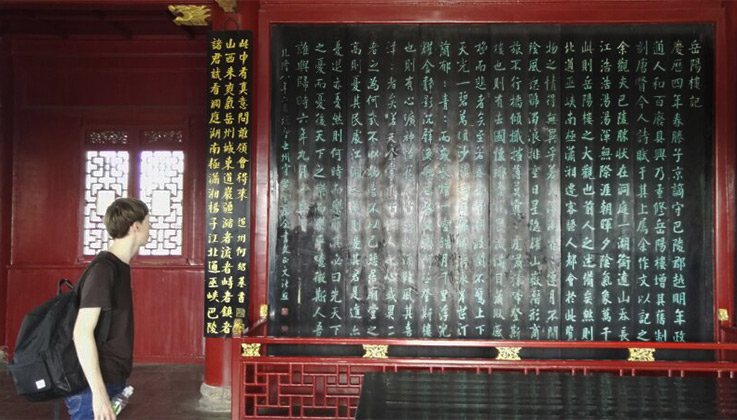 岳陽樓記
慶曆四年春滕子京謫守巴陵郡越明年政
通人和百廢具興乃重修岳陽樓增其舊制
刻唐賢今人詩賦于其上屬余作文以記之
予觀夫巴陵勝狀在洞庭一湖銜遠山吞長
江浩浩湯湯橫無際涯朝暉夕陰氣象萬千
此則岳陽樓之大觀也前人之述備矣然則
北通巫峽南極瀟湘遷客騷人多會於此覽
物之情得無異乎若夫霪雨霏霏連月不開
陰風怒號濁浪排空日星隱耀山岳潛形商
旅不行檣傾楫摧薄暮冥冥虎嘯猿啼登斯
樓也則有去國懷鄉憂讒畏譏滿目蕭然感
極而悲者矣至若春和景明波瀾不驚上下
天光一碧萬頃沙鷗翔集錦鱗游泳岸芷汀
蘭郁郁青青而或長煙一空皓月千里浮光
耀金靜影沉璧漁歌互答此樂何極登斯樓
也則有心曠神怡寵辱皆忘把酒臨風其喜
洋洋者矣嗟夫予嘗求古仁人之心或異二
者之為何哉不以物喜不以己悲居廟堂之
高則憂其民處江湖之遠則憂其君是進亦
憂退亦憂然則何時而樂耶其必曰先天下
之憂而憂後天下之樂而樂歟噫微斯人吾
誰與歸時六年九月十五日
諸君試看洞庭湖南極瀟湘揚子江北通巫峽巴陵
山西來爽氣岳州城東道巖疆瀦者流者峙者鎮者
此中有真意問誰領會得來 道州何紹基書